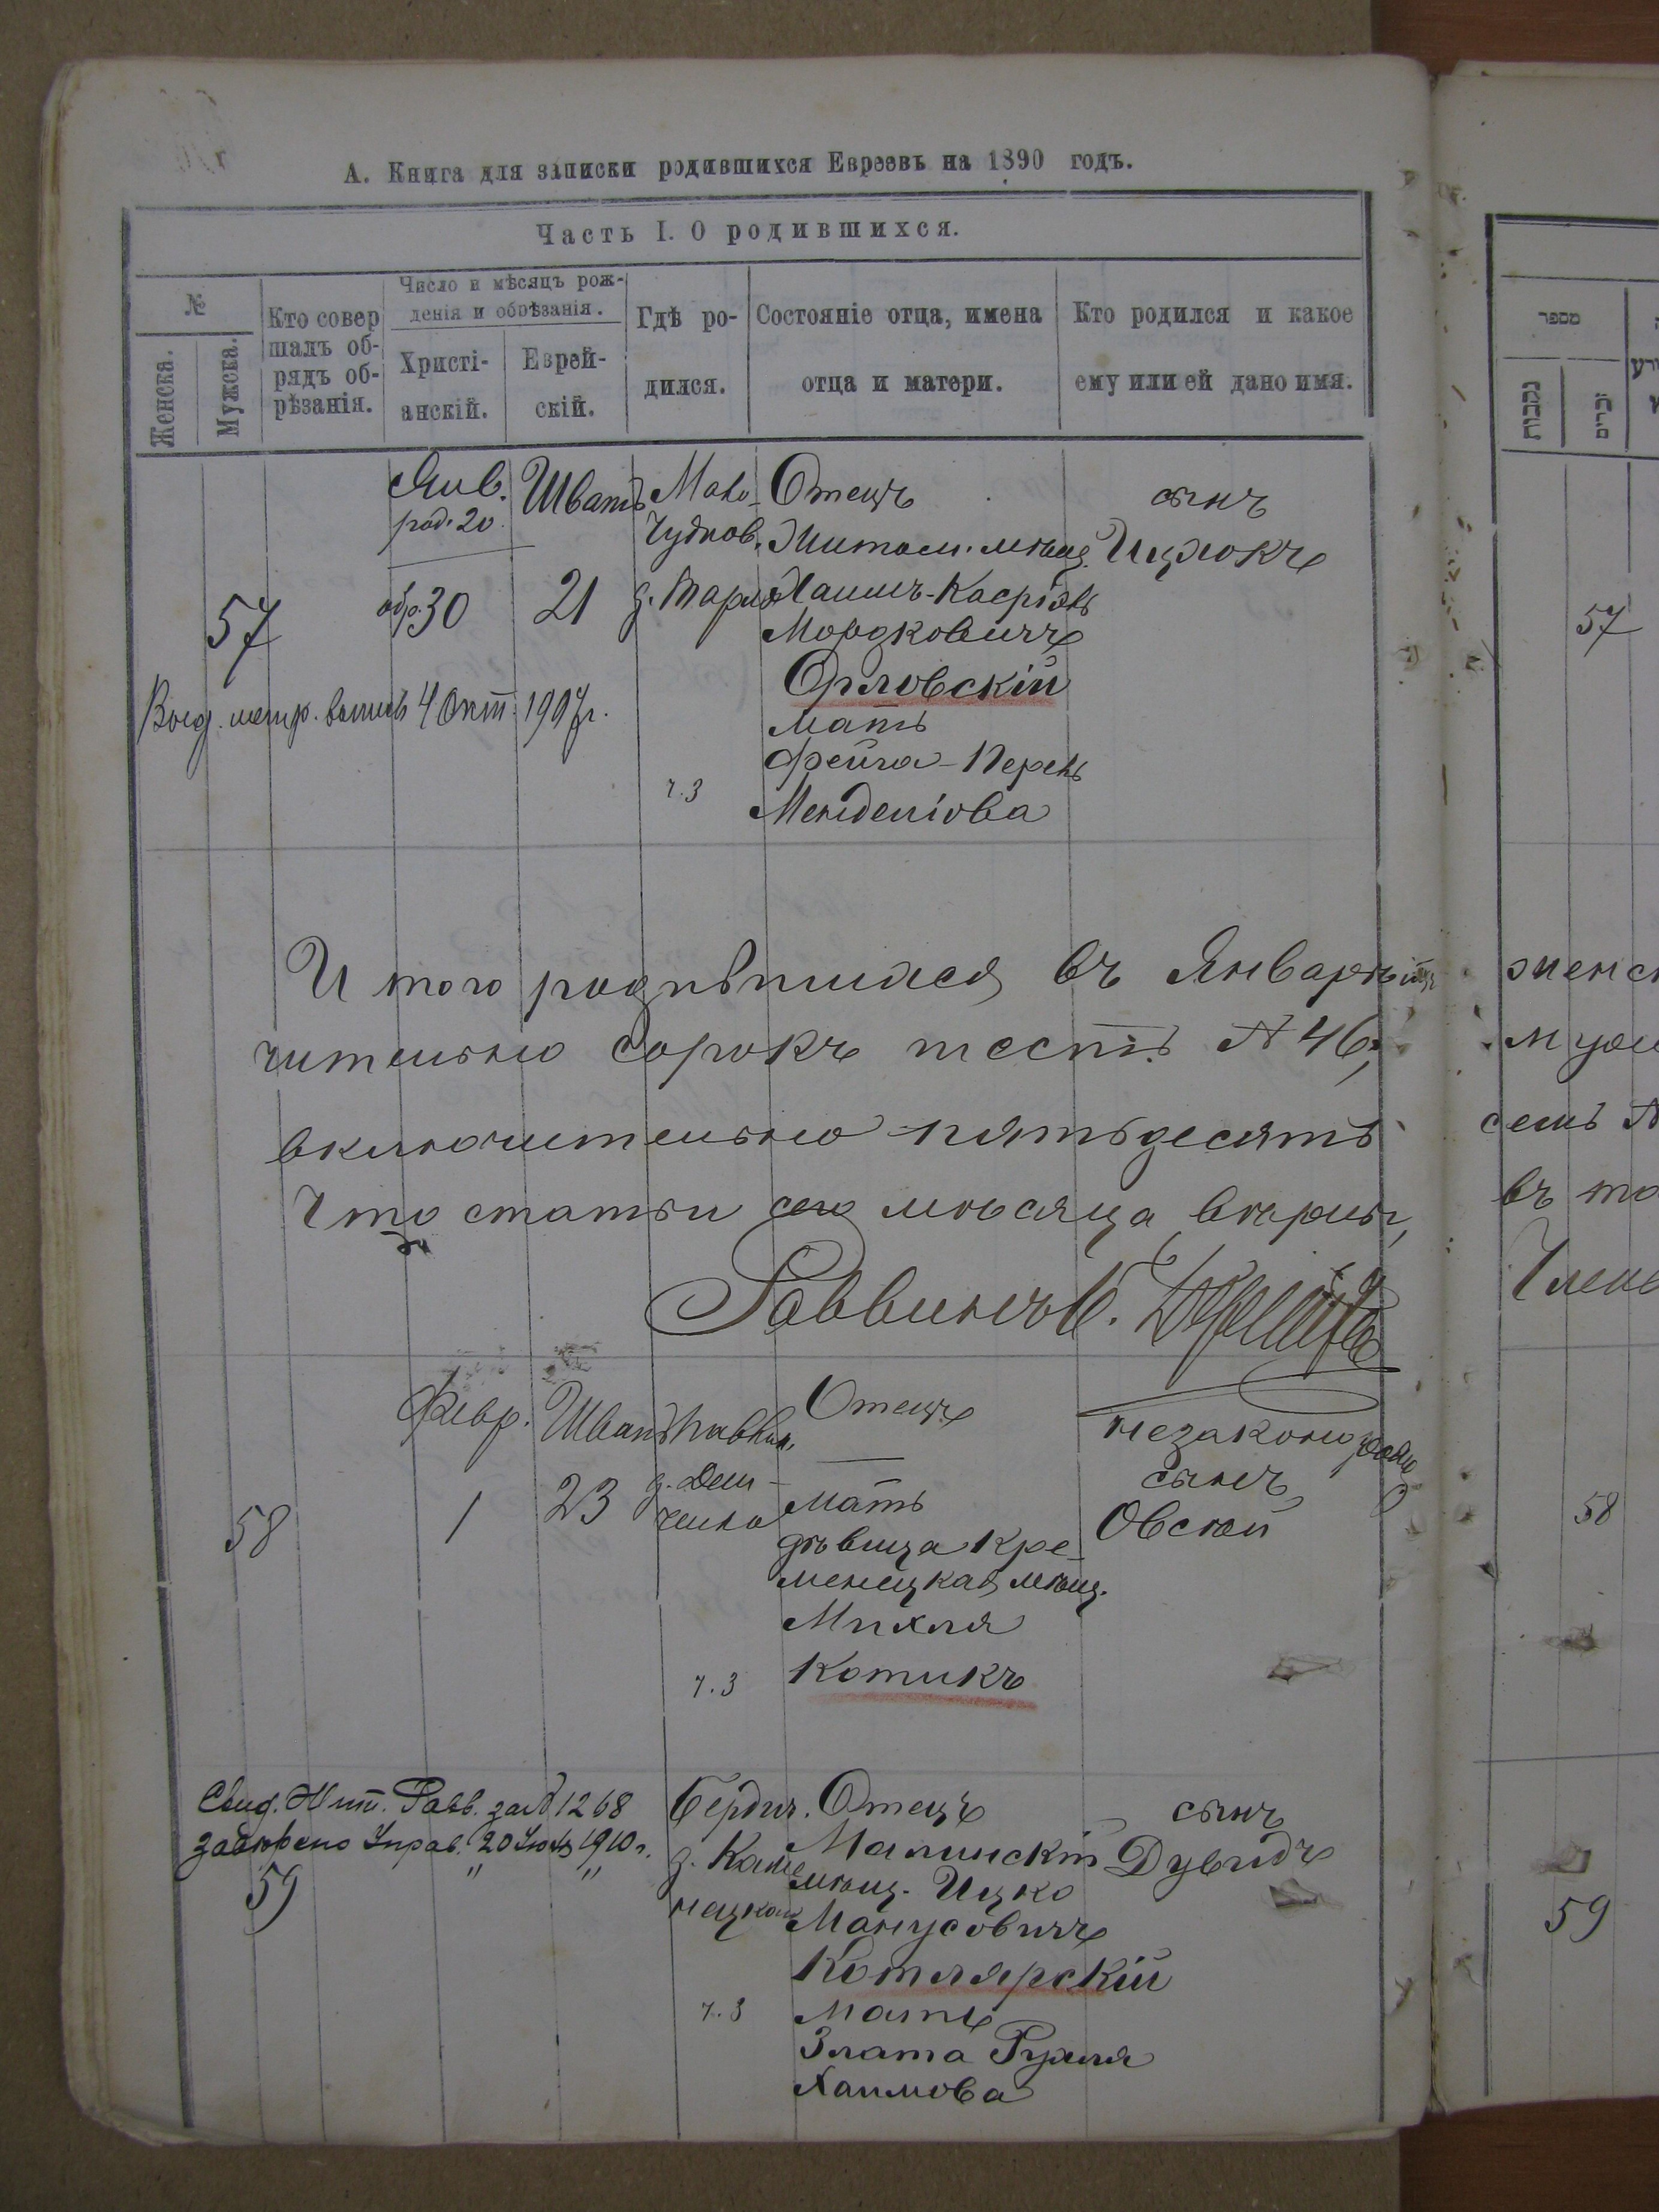 А. Книга для записки родившихся Евреевъ на 1890 годъ.
Часть I. О родившихся.
№
Женска.
Мужска.
Кто совер
шалъ об-
рядъ об-
рѣзанія.
Число и мѣсяцъ рож-
денія и обрѣзанія.
Христі-
анскій.
Еврей-
скій.
Гдѣ ро-
дился.
Состояніе отца, имена
отца и матери.
Кто родился и какое
ему или ей дано имя.
57
Янв.
род. 20
обр. 30
Шватъ
21
Мало
Чуднов.
Отецъ
Житом. мѣщ.
Хаимъ-Касріэль
Мордковичъ
Орловскій
мать
Фейга-Перель
Менделіова
ч.3
сынъ
Ицхокъ
Выд. метр. выпись 4 Окт. 1907 г.
И того родившихся въ Январѣ
чительно сорокъ шесть № 46,
включительно пятьдесять
Что статьи сего мѣсяца вѣрны,
Раввинъ
58
Февр.
1
Шватъ
23
Отецъ
мать
дѣвица Кре-
менецкая мѣщ.
Михля
Котикъ
ч.3
незаконо
сынъ
Овсюй
Свид. Жит. Равв. за № 1268
Управ. 20 1910 г.
59
Бердич.
Отецъ
Малинскій
мѣщ. Ицко
Манусовичъ
Котлярскій
мать
Злата Рухля
Хаимова
ч.3
сынъ
Дувидъ
מספר
נקבות
זכרים
57
женс
муж
семь
въ то
Член
58
59